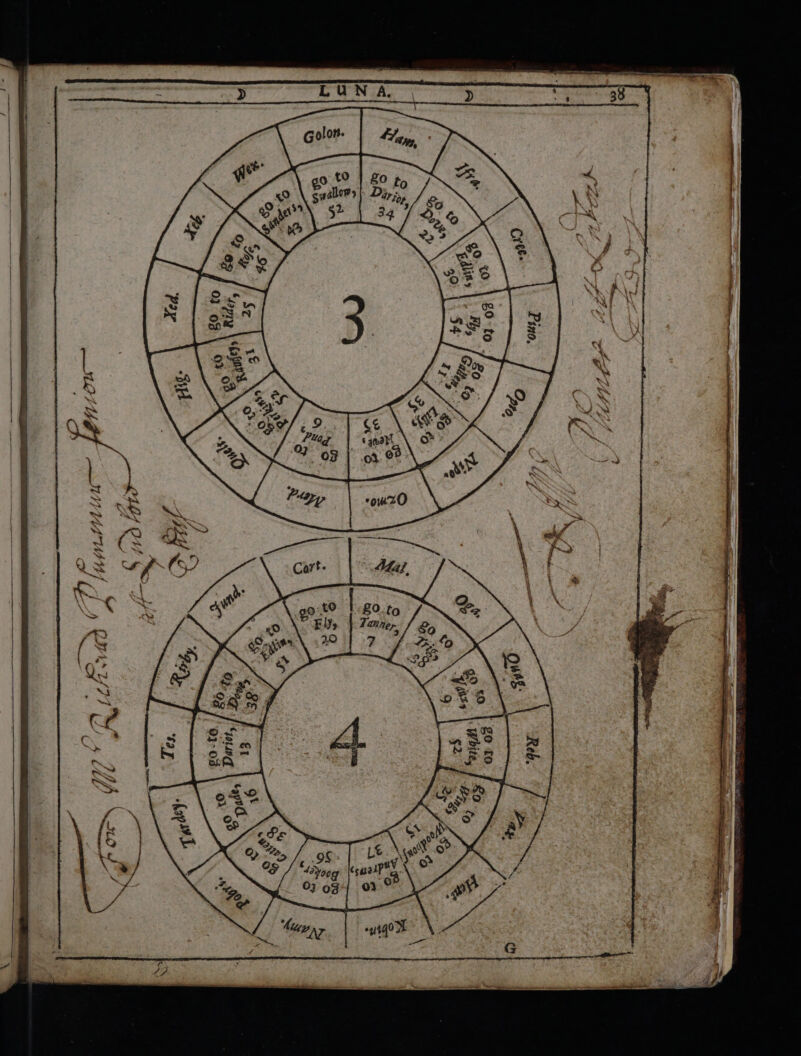 ☽ LUNA. ☽ 38
Golon.
go to
Swallow,
52
Ham.
go to
Dariot,
34
Ifra.
go to
Dove,
22
Cree.
go to
Edlin,
30
Pino.
go to
Fly,
54
Opto.
go to
Gallen,
11
Nipo.
go to
Lilly,
35
Ozmo.
go to
35
Mend.
go to
Pond,
6
Queli.
go to
Perkins,
52
Hig.
go to
31
Xed.
go to
Rider,
25
Xeb.
go to
Rose,
46
Wex.
go to
Sanders,
43
3
Mr Richard Plummer senior
att Ludlow
Mr Plumer att Ludlow
Cart.
go to
Fly,
20
Mal.
go to
Tanner,
7
Oga.
go to
Trig,
38
Quag.
go to
Vaux,
9
Reb.
go to
White,
52
Vax.
go to
Wing,
25
go to
Woodhouse,
15
Robin.
go to
Andrews,
37
Namy.
go to
Booker,
56
Pobri.
go to
38
Tardey.
go to
Dade,
16
Tes.
go to
Dariot,
13
Risby.
go to
Dove,
38
Jund.
go to
Edlin,
51
4
G